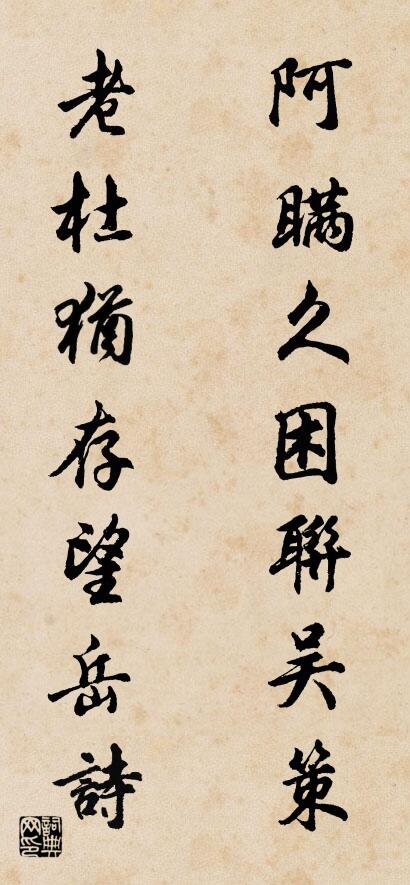 阿瞞久困聯吴策
老杜猶存望岳詩
詞典網印